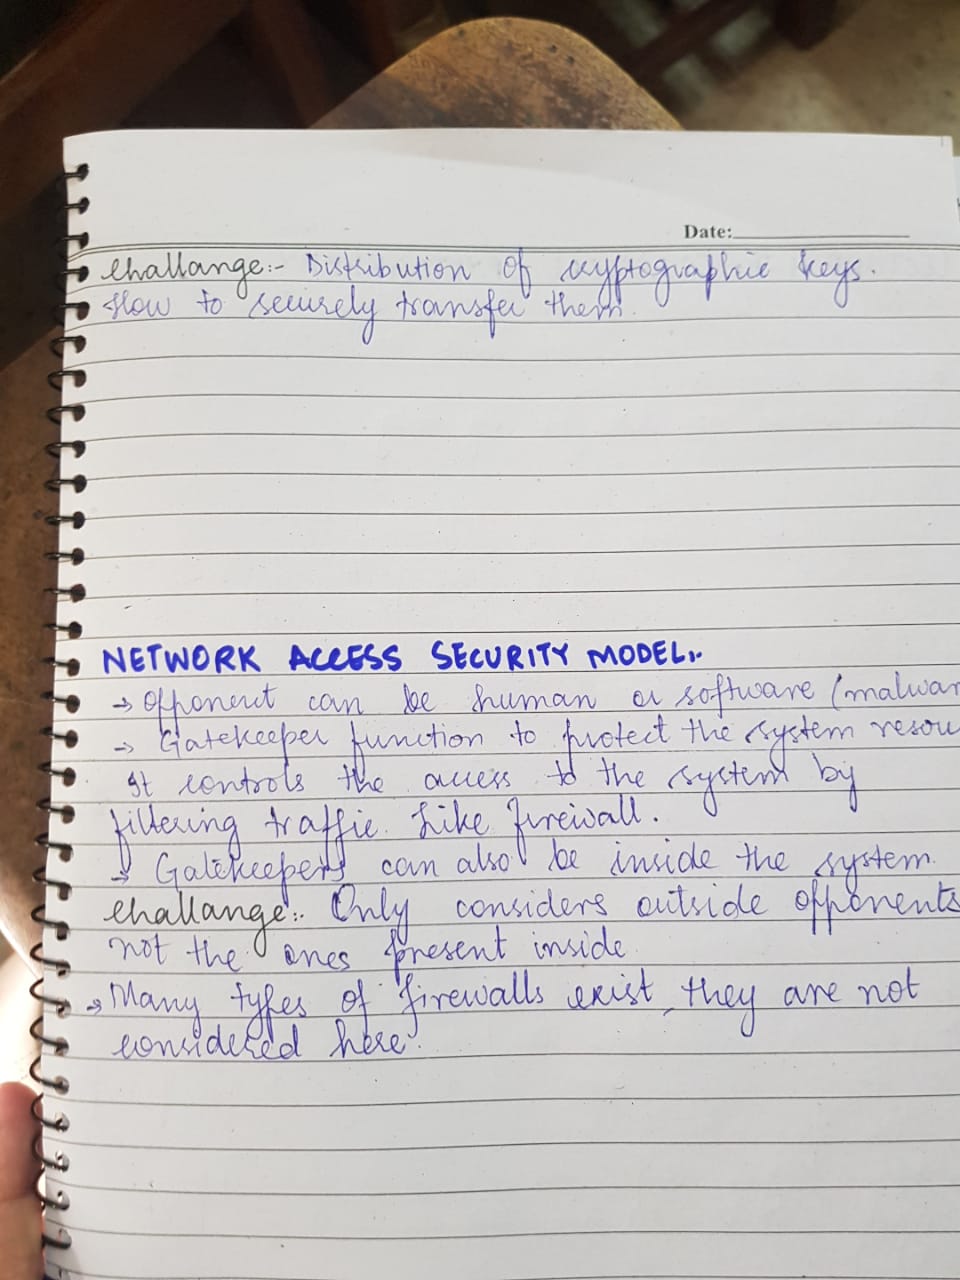 Date:
Challange:- Distribution of cryptographic keys.
How to securely transfer them.
NETWORK ACCESS SECURITY MODEL:-
→ Opponent can be human or software (malwar
→ Gatekeeper function to protect the system resou
It controls the access to the system by
filtering traffic. Like firewall.
→ Gatekeepers can also be inside the system.
Challange:- Only considers outside opponents
not the ones present inside.
→ Many types of firewalls exist, they are not
considered here.